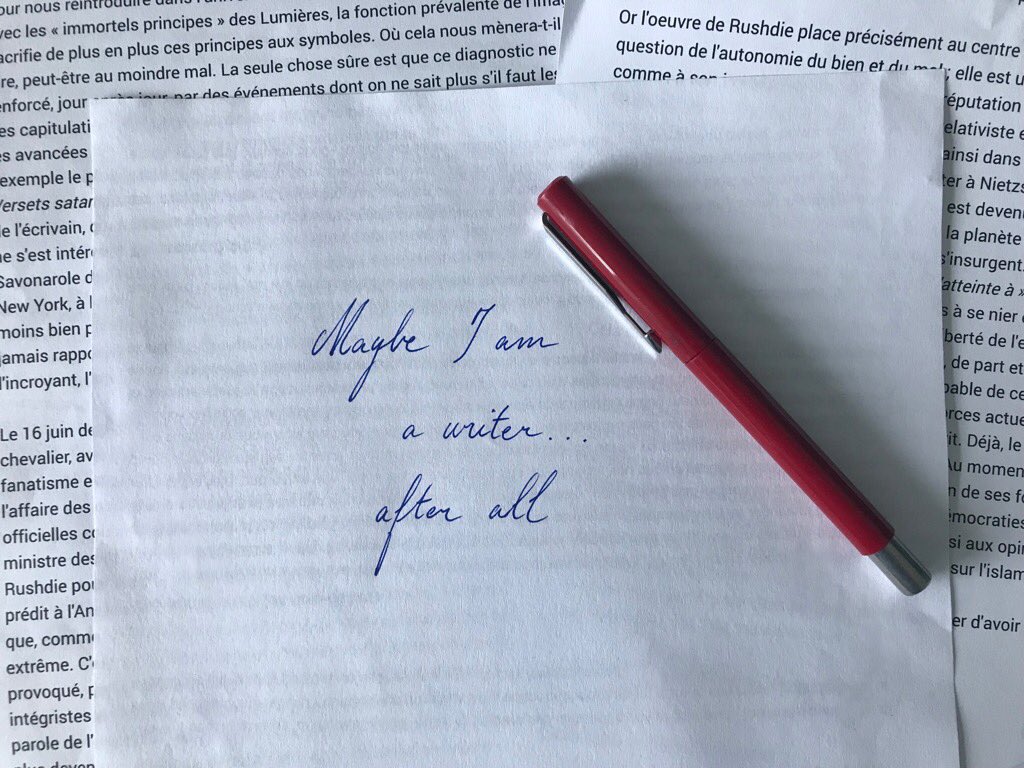 pour nous réintroduire dans
avec les « immortels principes » des Lumières, la fonction prévalente de
sacrifie de plus en plus ces principes aux symboles. Où cela nous mènera-t-il
peut-être au moindre mal. La seule chose sûre est que ce diagnostic ne
enforcé, jour après jour par des événements dont on ne sait plus s'il faut les
es capitulati
es avancées
exemple le p
Versets satan
de l'écrivain,
ne s'est intér
Savonarole d
New York, à l
moins bien p
jamais rappo
l'incroyant, l'
Le 16 juin de
chevalier, av
fanatisme e
l'affaire des
officielles co
ministre des
Rushdie pou
prédit à l'An
que, comme
extrême. C'
provoqué, p
intégristes
parole de l'
Or l'oeuvre de Rushdie place précisément au centre
question de l'autonomie du bien et du mal; elle est u
comme à son
réputation
relativiste e
ainsi dans
ter à Nietzs
est deven
la planète
s'insurgent.
atteinte à »
s à se nier
berté de l'e
, de part et
pable de ce
orces actue
it. Déjà, le
Au momen
n de ses fo
émocraties
si aux opin
sur l'islam
er d'avoir
Maybe I am
a writer...
after all